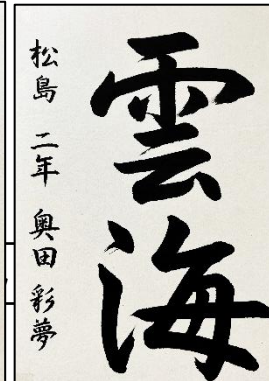 雲海
松島 二年 奥田 彩夢